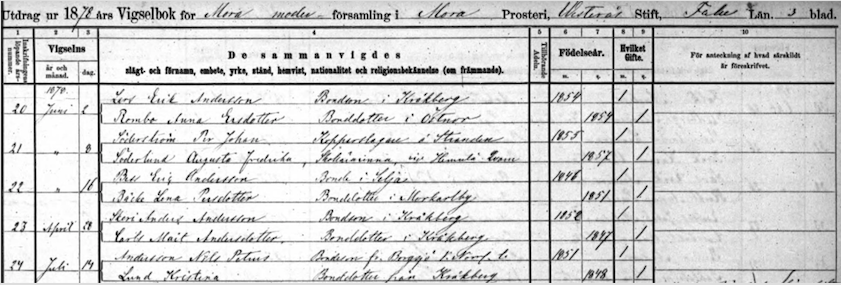 Utdrag ur 1878 års Vigselbok för Mora moder församling i Mora Prosteri, Westerås Stift, Falu Län. 3 blad.
1 2 3 4 5 6 7 8 9 10
Inskrifningens löpande nummer. Vigselns år och månad. dag. De sammanvigdes slägt- och förnamn, embete, yrke, stånd, hemvist, nationalitet och religionsbekännelse (om främmande). Tillhörande Adeln. Födelseår. m. q. Hvilket Gifte. m. q. För anteckning af hvad särskildt är föreskrifvet.
1878.
20 Juni 2 Erik Andersson Bondson i Kråkberg 1854 1
Rombo Anna Ersdotter Bonddotter i Östnor 1854 1
21 " 8 Söderström Per Johan Kopparslagare å Stranden 1855 1
Söderlund Augusta Fredrika, Skollärarinna, vid Hemula Qvarn 1857 1
22 " 16 Erik Andersson Bonde i Selja 1846 1
Bäcke Lena Persdotter Bonddotter i Morkarlby 1851 1
23 April 28 Skeri Anders Andersson Bondson i Kråkberg 1852 1
Carls Mait Andersdotter, Bonddotter i Kråkberg 1847 1
24 Juli 14 Andersson Nils Petrus Bondeson fr Borgsjö 1851 1
Lund Kristina Bonddotter från Kråkberg 1848 1